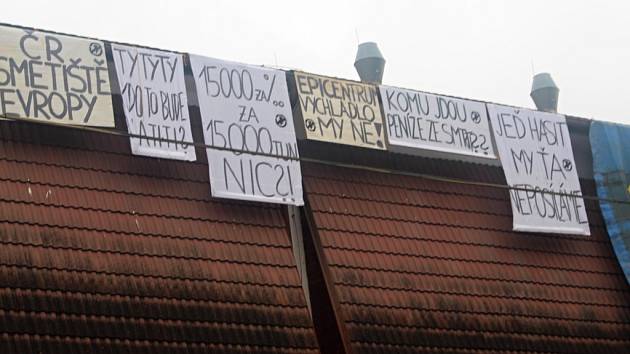 ČR
SMETIŠTĚ
EVROPY
TYTYTY
KDO TO BUDE
PLATIT!?
15000 ZA %..
ZA
15000 TUN
NIC?!
EPICENTRUM
VYCHLADLO
MY NE!
KOMU JDOU
PENÍZE ZE SMRTI??
JEĎ HASIT
MY TA
NEPOSÍLÁME